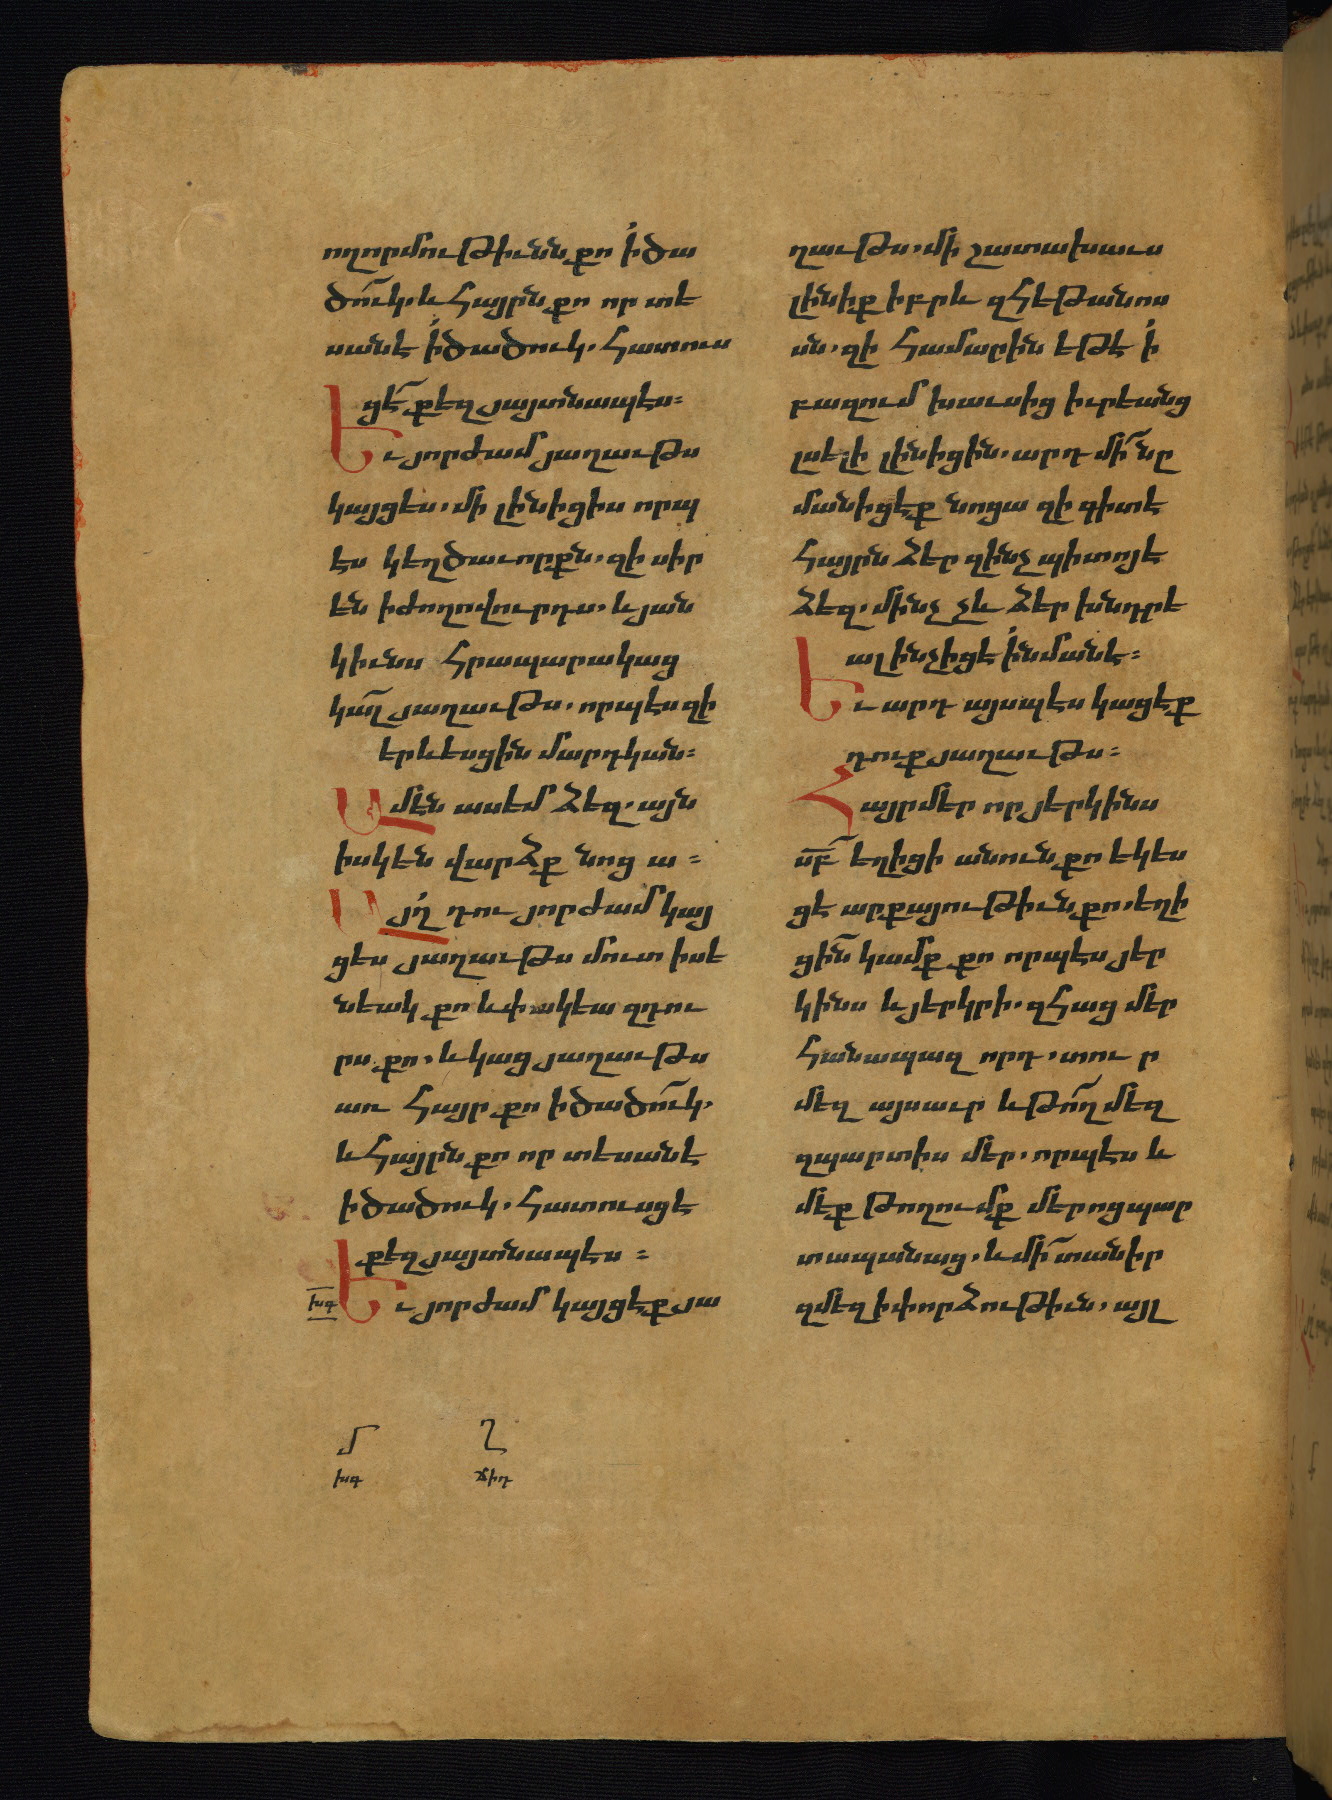 ողորմութիւնն քո ի ծա
ծուկ. և Հայրն քո որ տե
սանէ ի ծածուկ. Հատուս
ցէ քեզ յայտնապէս։
Եւ յորժամ յաղաւթս
կայցես. մի լինիցիս որպ
էս կեղծաւորքն. զի սիր
են ի ժողովուրդս. և յան
կիւնս Հրապարակաց
կալ յաղաւթս. որպէս զի
երևեսցին մարդկան։
Ամէն ասեմ ձեզ. այն
իսկ են վարձք նոց ա։
Այղ դու յորժամ կայ
ցես յաղաւթս մուտ ի սե
նեակ քո և փակեա զդու
րս քո. և կաց յաղաւթս
առ Հայր քո ի ծածուկ.
և Հայրն քո որ տեսանէ
ի ծածուկ. Հատուսցէ
քեզ յայտնապէս։
Եւ յորժամ կայցէք յա
խգ
մ
խգ
ղ
ճիդ
ղաւթս. մի շատախաւս
լինիք իբրև զՀեթանոս
սն. զի Համարին եթէ ի
բազում խաւսից իւրեանց
լսելի լինիցին. արդ մի նը
մանիցէք նոցա զի գիտէ
Հայրն ձեր զինչ պիտոյ է
ձեզ. մինչ չև ձեր խնդրե
ալ ինչ իցէ ինմանէ։
Եւ արդ այսպէս կացէք
դուք յաղաւթս։
Հայր մեր որ յերկինս
սբ եղիցի անուն քո եկես
ցէ արքայութիւն քո. եղի
ցին կամք քո որպէս յեր
կինս և յերկրի. զՀաց մեր
Հանապազ որդ. տու ր
մեզ այսաւր և թող մեզ
զպարտիս մեր. որպէս և
մեք թողումք մերոց պար
տապանաց. և մի տանիր
զմեզ ի փորձութիւն. այլ